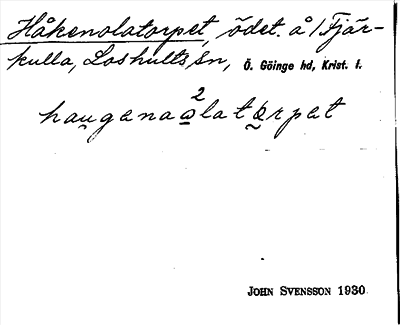 Håkenolatorpet, ödet. å 1 Fjär-
kulla, Loshults sn, Ö. Göinge hd, Krist. l.
hau̯gena2ω̲lato̯rpet
JOHN SVENSSON 1930.